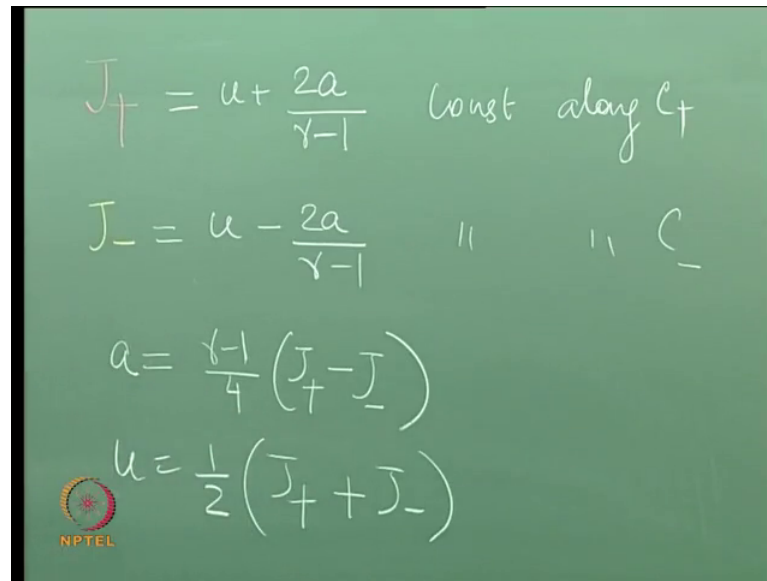 J₊ = u + 2a/(γ-1) const along C₊
J₋ = u - 2a/(γ-1) " " C₋
a = γ-1/4 (J₊ - J₋)
u = 1/2 (J₊ + J₋)
NPTEL